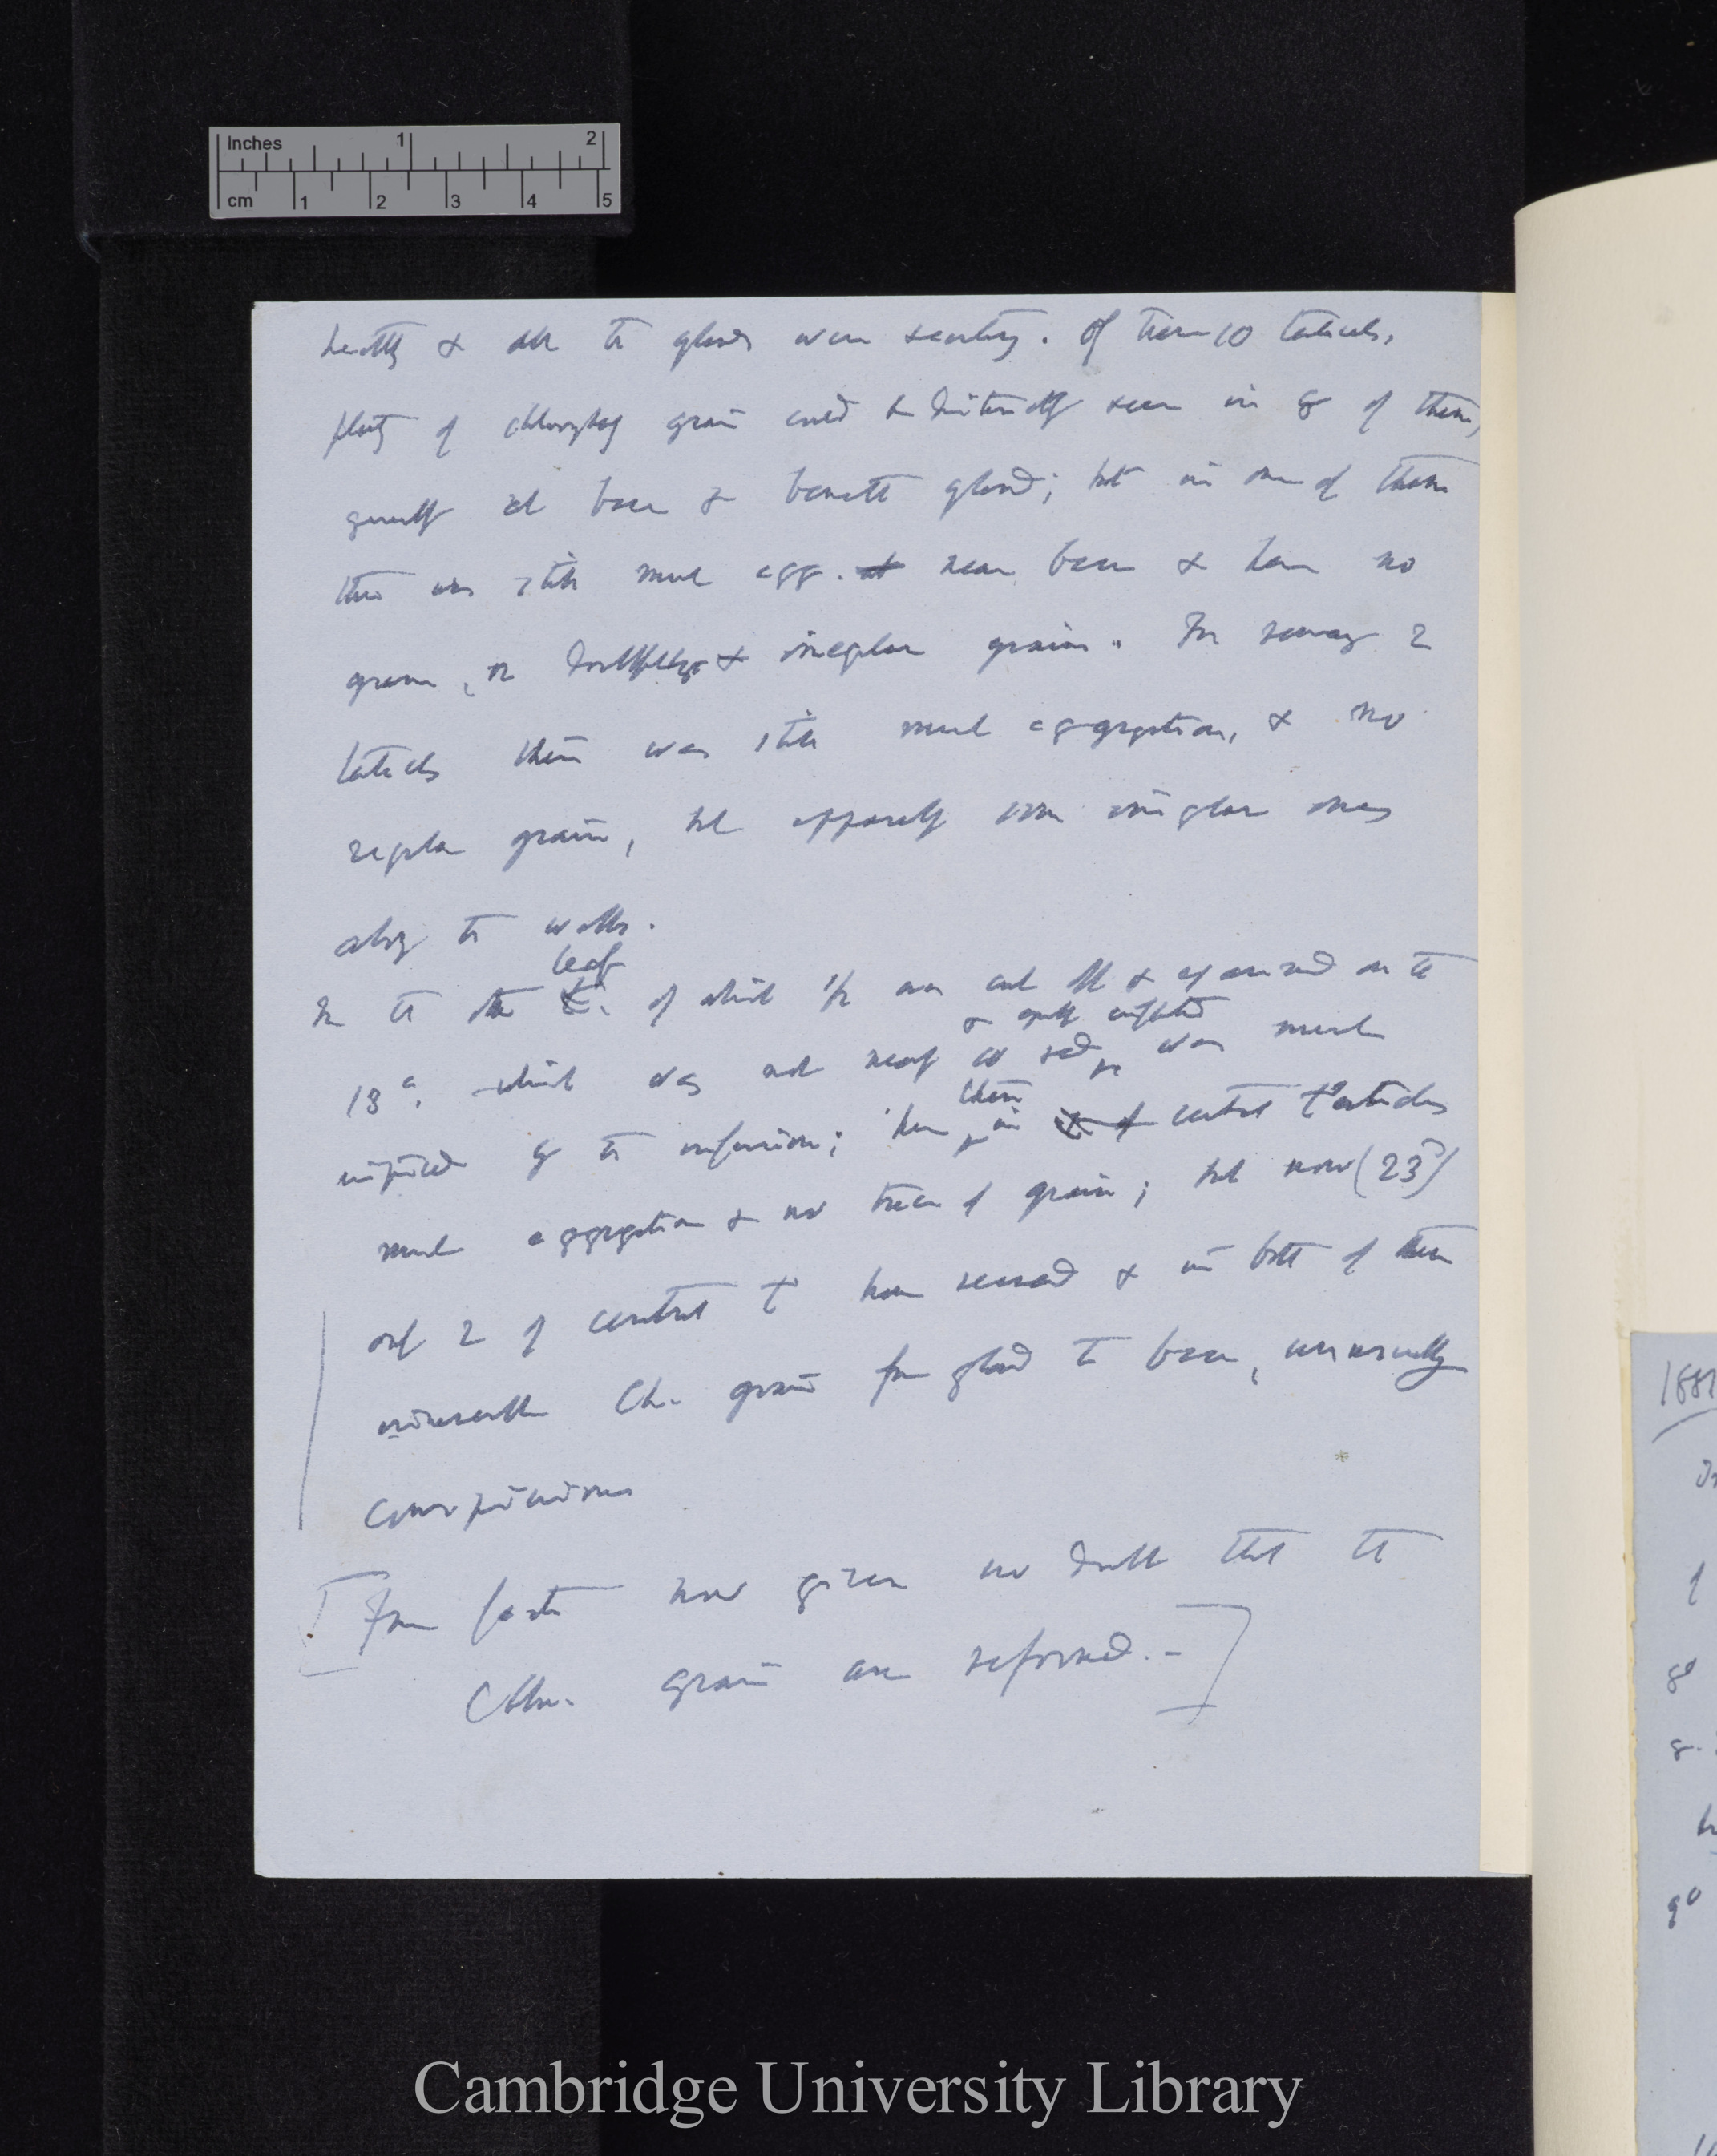 Inches 1 2
cm 1 2 3 4 5
healthy & all the glands were secreting. Of these 10 tentacles,
plenty of chlorophyll grains could be distinctly seen in 8 of them,
generally at base & beneath gland; but in one of them
there was still much agg. at near base & here no
grains, or doubtfully & irregular grains. In remaining 2
tentacles there was still much aggregation, & no
regular grains, but apparently some irregular ones
along the walls.
In the other leaf of which 1/2 was cut off & examined on the
18th, which was not nearly so red & quite inflected was much
injured by the infusion; here there in of central tentacles
much aggregation & no trace of grains; but now (23d)
only 2 of central t have and & in both of them
innumerable Ch. grains from gland to base, unusually
conspicuous
[From facts now given no doubt that the
Chlo. grains are reformed.—]
1881
Cambridge University Library